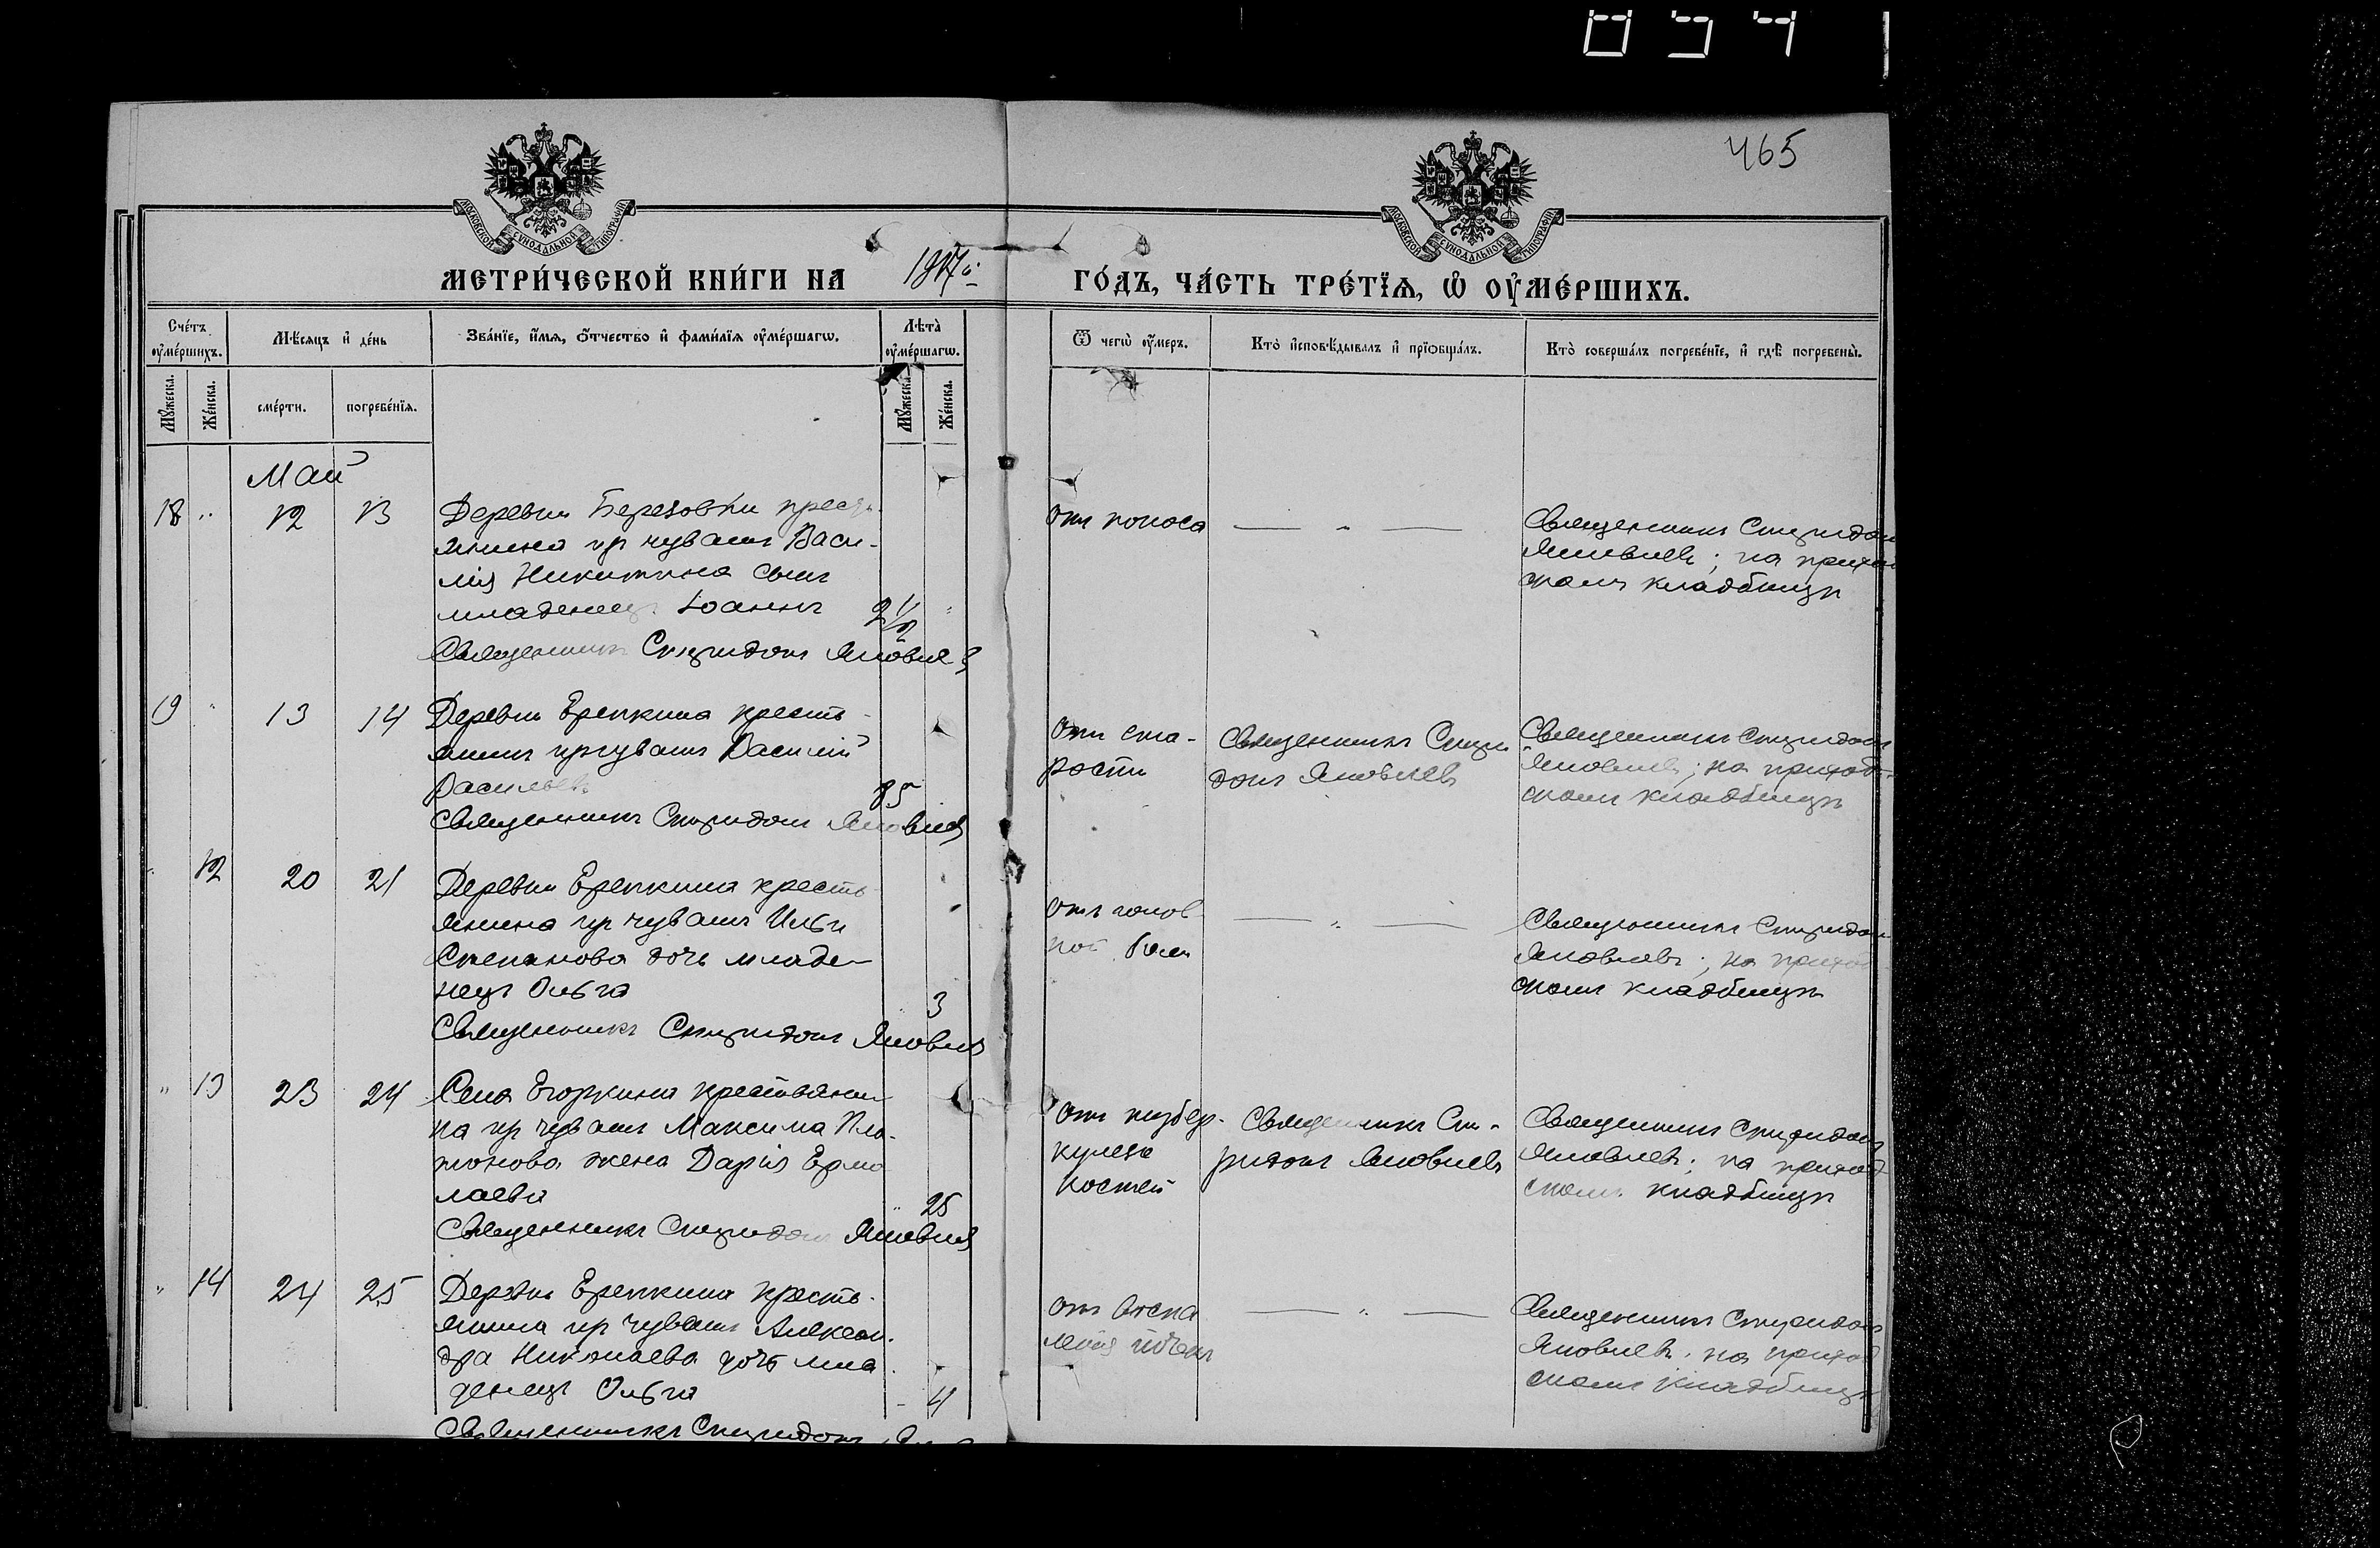 465
МОСКОВСКОЙ СѴНОДАЛЬНОЙ ТИПОГРАФІИ
МОСКОВСКОЙ СѴНОДАЛЬНОЙ ТИПОГРАФІИ
МЕТРИ́ЧЕСКОЙ КНИ́ГИ НА 1917й ГО́ДЪ, ЧА́СТЬ ТРЕ́ТЇѦ, Ѽ ОУ҆МЕ́РШИХЪ.
Сче́тъ оу҆ме́ршихъ.
Мѣ́сяцъ и҆ де́нь
Зва́нїе, и҆́мѧ, ѻ҆́тчество и҆ фами́лїѧ оу҆ме́ршагѡ.
Лѣ́та оу҆ме́ршагѡ.
Ѿ чегѡ̀ оу҆́меръ.
Кто̀ и҆сповѣ́дывалъ и҆ прїобща́лъ.
Кто̀ соверша́лъ погребе́нїе, и҆ гдѣ̀ погребены̀.
Мꙋ́жеска.
Же́нска.
сме́рти.
погребе́нїѧ.
Мꙋ́жеска.
Же́нска.
Май
18 " 12 13 Деревни Березовки кресть-
янина из чувашъ Васи-
лія Никитина сынъ
младенецъ Іоаннъ 2 1/2 "
Священникъ Спиридонъ Яковлев
отъ поноса — " —
Священникъ Спиридон
Яковлевъ; на приход
скомъ кладбищѣ
19 " 13 14 Деревни Ерепкина кресть-
янинъ из чувашъ Василій
Васильевъ 85
Священникъ Спиридонъ Яковлев
Отъ ста-
рости
Священникъ Спири
донъ Яковлевъ
Священникъ Спиридонъ
Яковлевъ; на приход-
скомъ кладбищѣ
" 12 20 21 Деревни Ерепкина кресть-
янина из чувашъ Ильи
Степанова дочь младе-
нецъ Ольга 3
Священникъ Спиридонъ Яковлев
отъ голов
ной боли — " —
Священникъ Спиридон
Яковлевъ; на приход
скомъ кладбищѣ
" 13 23 24 Села Егоркина крестьяни-
на из чувашъ Максима Пла-
тонова жена Дарія Ермо
лаева " 25
Священникъ Спиридонъ Яковлев
отъ тубер-
кулеза
костей
Священникъ Спи-
ридонъ Яковлевъ
Священникъ Спиридонъ
Яковлевъ; на приход
скомъ кладбищѣ
" 14 24 25 Деревни Ерепкина кресть-
янина из чувашъ Алексан-
дра Николаева дочь мла
денецъ Ольга 4
Священникъ Спиридонъ
отъ воспа
ленія — " —
Священникъ Спиридонъ
Яковлевъ. на приход
скомъ кладбищѣ